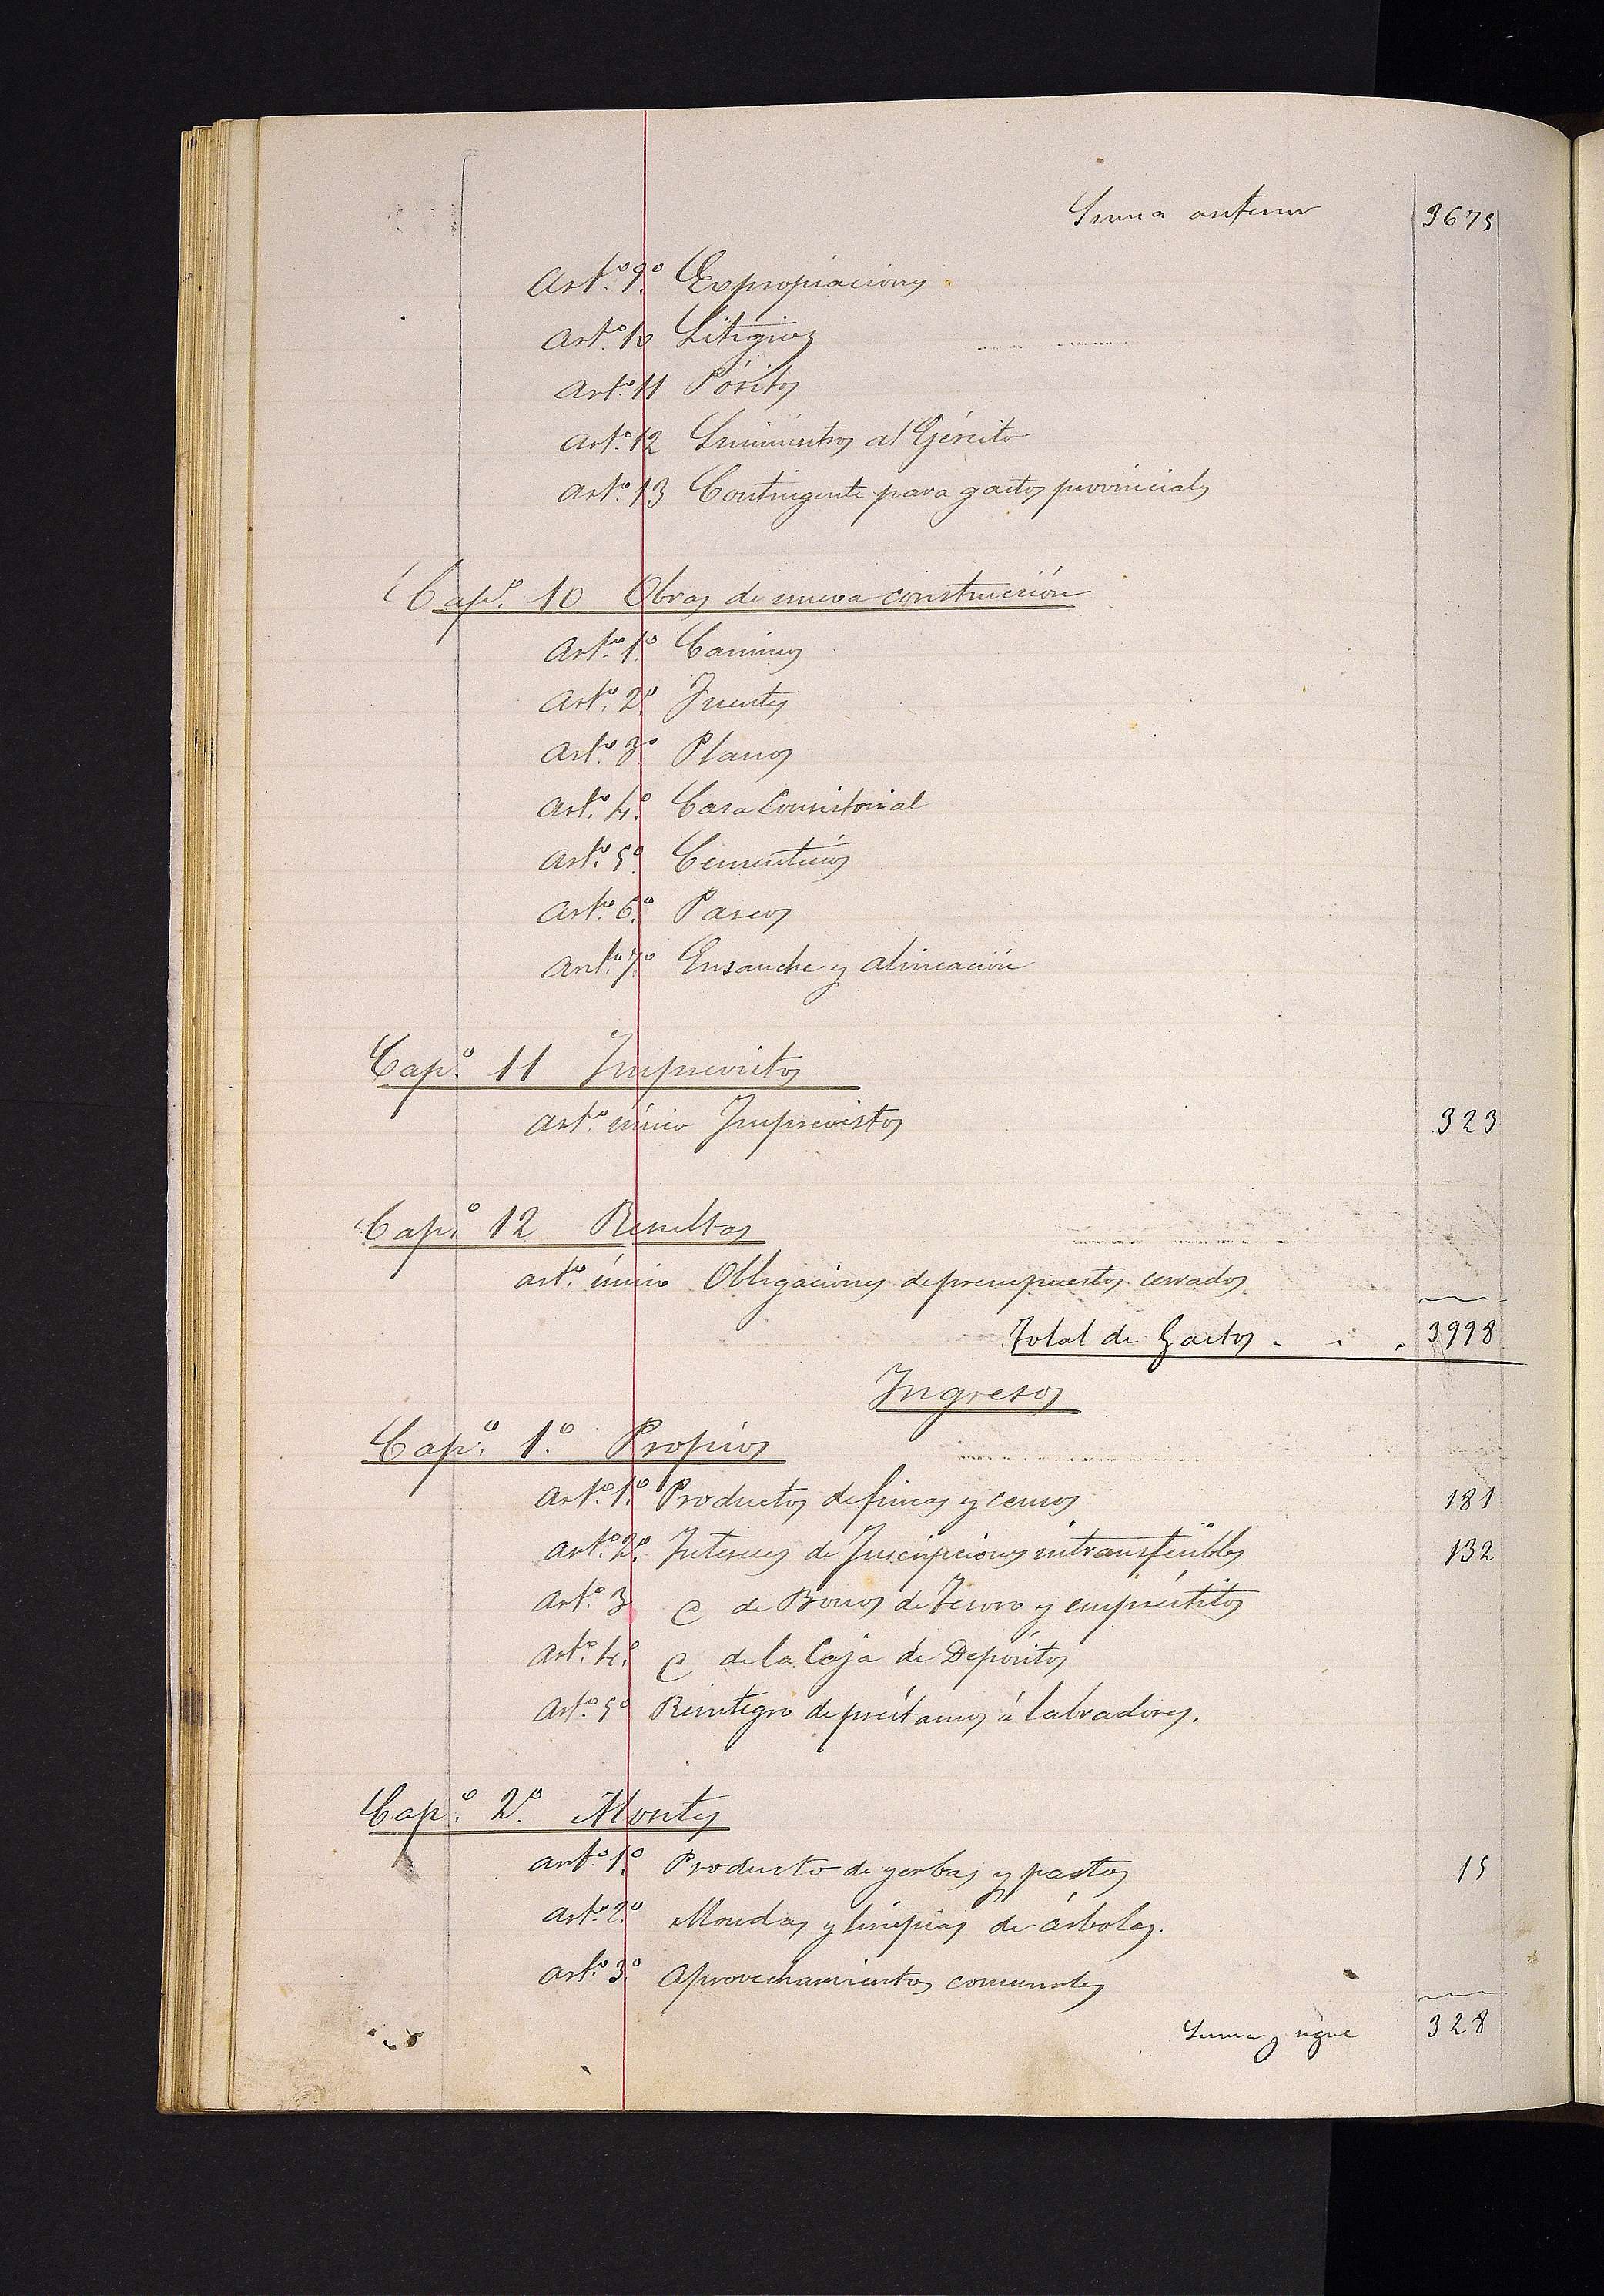 Suma anterior 3675
Artº. 9.º Expropiaciones
Artº. 10 Litigios
Artº. 11 Pósitos
Artº. 12 Suministros al Ejército
Artº. 13 Contingente para gastos provinciales
Capº. 10 Obras de nueva construcción
Artº. 1.º Caminos
Artº. 2.º Fuentes
Artº. 3.º Planos
Artº. 4.º Casa Consistorial
Artº. 5.º Cementerios
Artº. 6.º Paseos
Artº. 7.º Ensanche y alineación
Capº. 11 Imprevistos
Artº. único Imprevistos 323
Capº. 12 Resultas
artº. único Obligaciones de presupuestos cerrados
Total de Gastos . . . 3998
Ingresos
Capº. 1.º Propios
Artº. 1.º Productos de fincas y censos 181
Artº. 2.º Intereses de Inscripciones intransferibles 132
Artº. 3 @ de Bonos de Tesoro y empréstitos
Artº. 4.º @ de la Caja de Depósitos
Artº. 5º Reintegro de préstamos á labradores.
Capº. 2.º Montes
Artº. 1.º Producto de yerbas y pastos 15
Artº. 2.º Mondas y limpias de árboles.
Artº. 3.º Aprovechamientos comunales
Suma y sigue 328